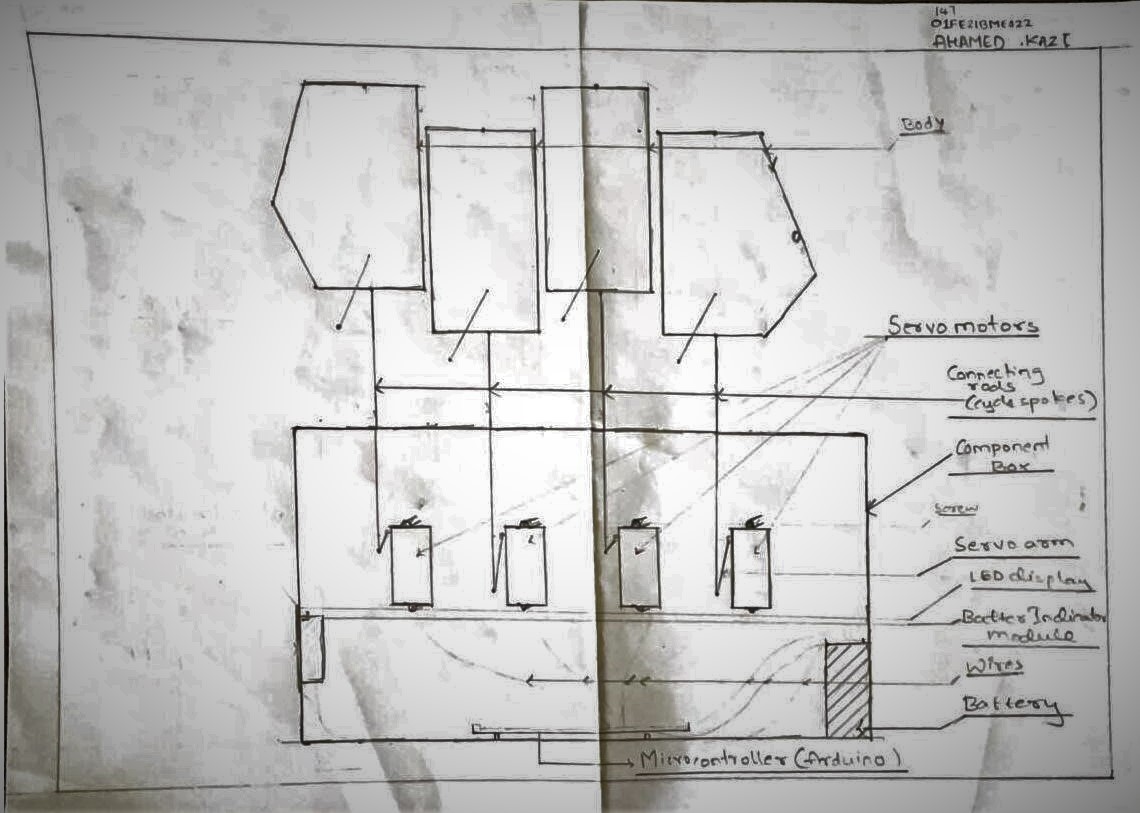 147
01FE21BME022
AHAMED .KAZI
Body
Servo motors
Connecting
rods
(cycle spokes)
Component
Box
Screw
Servo arm
LED display
Batter Indicator
module
Wires
Battery
Microcontroller (Arduino)